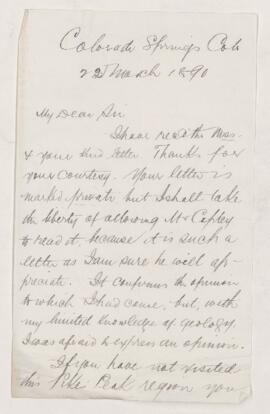 Colorado Springs Col
22 March 1890
My Dear Sir
I have rec'd the Mss
& your kind letter. Thanks for
your courtesy. Your letter is
marked private but I shall take
the liberty of allowing Mr Copley
to read it, because it is such a
letter as I am sure he will ap-
preciate. It confirms the opinion
to which I had come, but, with
my limited knowledge of geology,
I was afraid to express an opinion.
If you have not visited
this Pike Peak region you